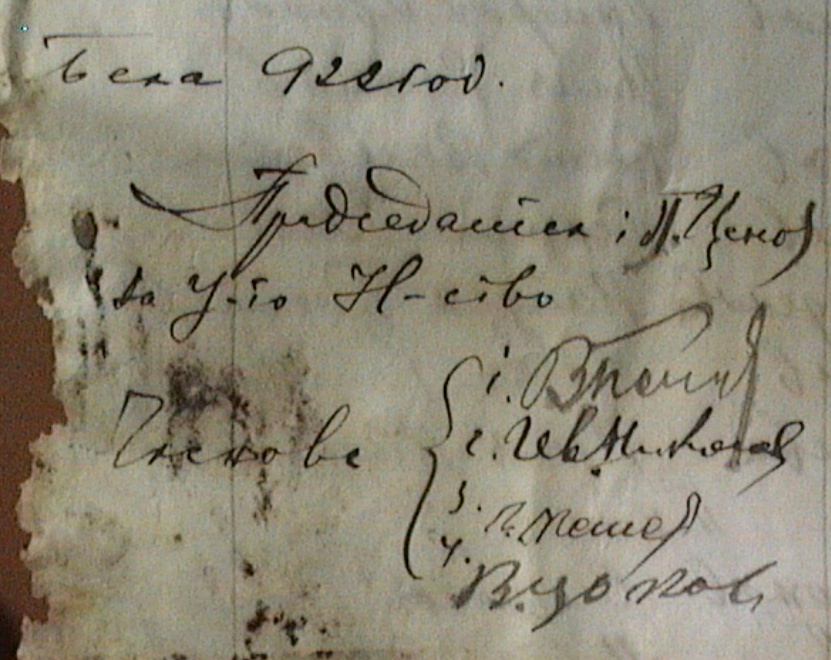 Бела 922 год.
Председател: П. Ценов
за У-то Н-ство
Членове
1.
2. Цв. Николов
3. П. Пешев
4. В. Цоков